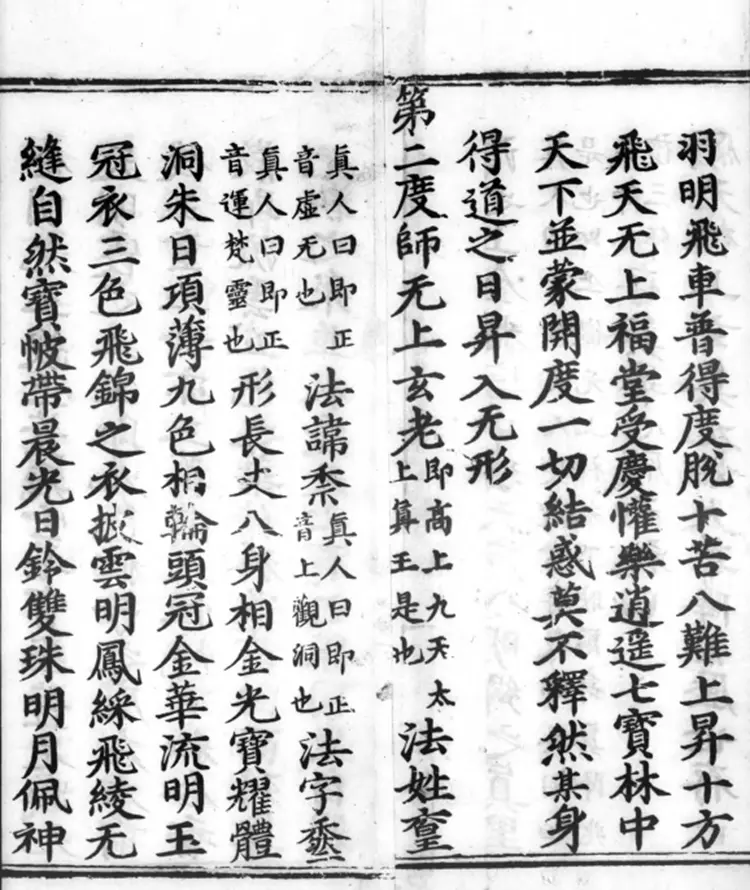 羽明飛車普得度脫十苦八難上昇十方
飛天无上福堂受慶懽樂逍遥七寶林中
天下並蒙開度一切結惑莫不釋然其身
得道之日昇入无形
第二度師无上玄老即高上九天太上真王是也法姓
眞人曰即正音虛无也法諱眞人曰即正音上觀洞也法字
眞人曰即正音運梵靈也形長丈八身相金光寶耀體
洞朱日項薄九色相輪頭冠金華流明玉
冠衣三色飛錦之衣披雲明鳳綵飛綾无
縫自然寶帔帶晨光日鈴雙珠明月佩神